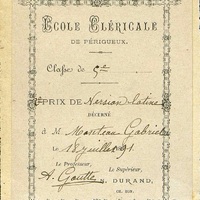 ÉCOLE CLÉRICALE
DE PÉRIGUEUX.
Classe de 5e
PRIX DE Version latine
DÉCERNÉ
A M. Gabriel
le 18 juillet 91
Le Professeur,
Le Supérieur,
A. Goutte
H. DURAND,
CH. HON.